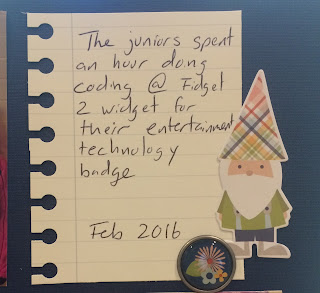 The juniors spent
an hour doing
coding @ Fidget
2 widget for
their entertainment
technology
badge
Feb 2016